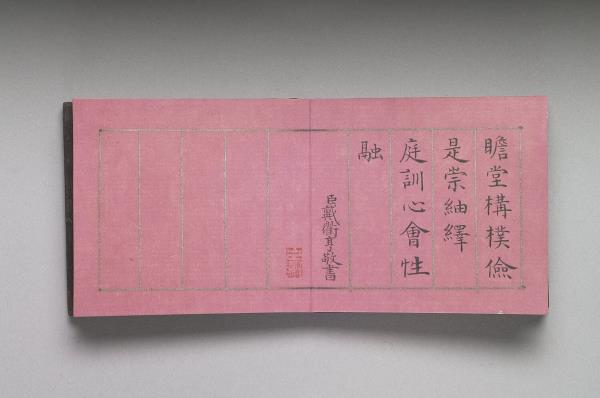 瞻堂構樸儉
是崇紬繹
庭訓心會性
融
臣戴衢亨敬書